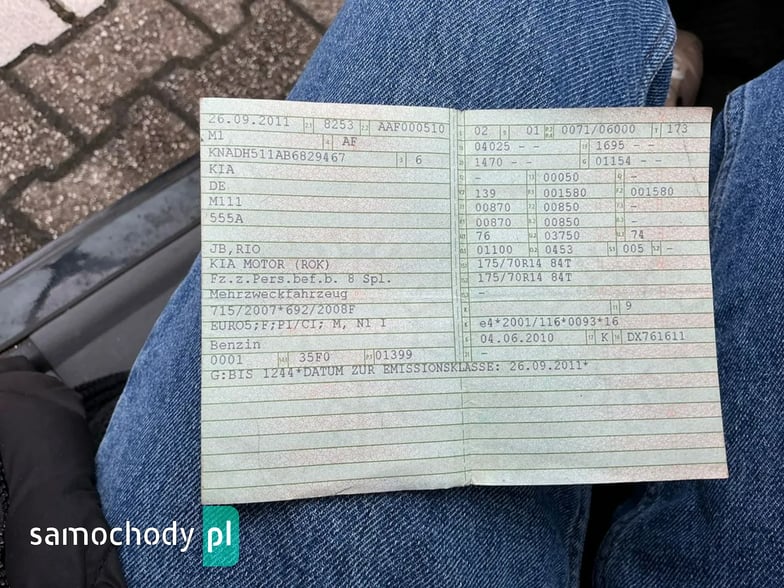 26.09.2011 8253 AAF000510
M1 AF
KNADH511AB6829467 6
KIA
DE
M111
555A
JB,RIO
KIA MOTOR (ROK)
Fz.z.Pers.bef.b. 8 Spl.
Mehrzweckfahrzeug
715/2007*692/2008F
EURO5;F;PI/CI; M, N1 I
Benzin
0001 35F0 01399
G:BIS 1244*DATUM ZUR EMISSIONSKLASSE: 26.09.2011*
02 01 0071/06000 173
04025 - - 1695 - -
1470 - - 01154 - -
- 00050 -
139 001580 001580
00870 00850 -
00870 00850 -
76 03750 74
01100 0453 005 -
175/70R14 84T
175/70R14 84T
-
9
e4*2001/116*0093*16
04.06.2010 K DX761611
-
samochody pl